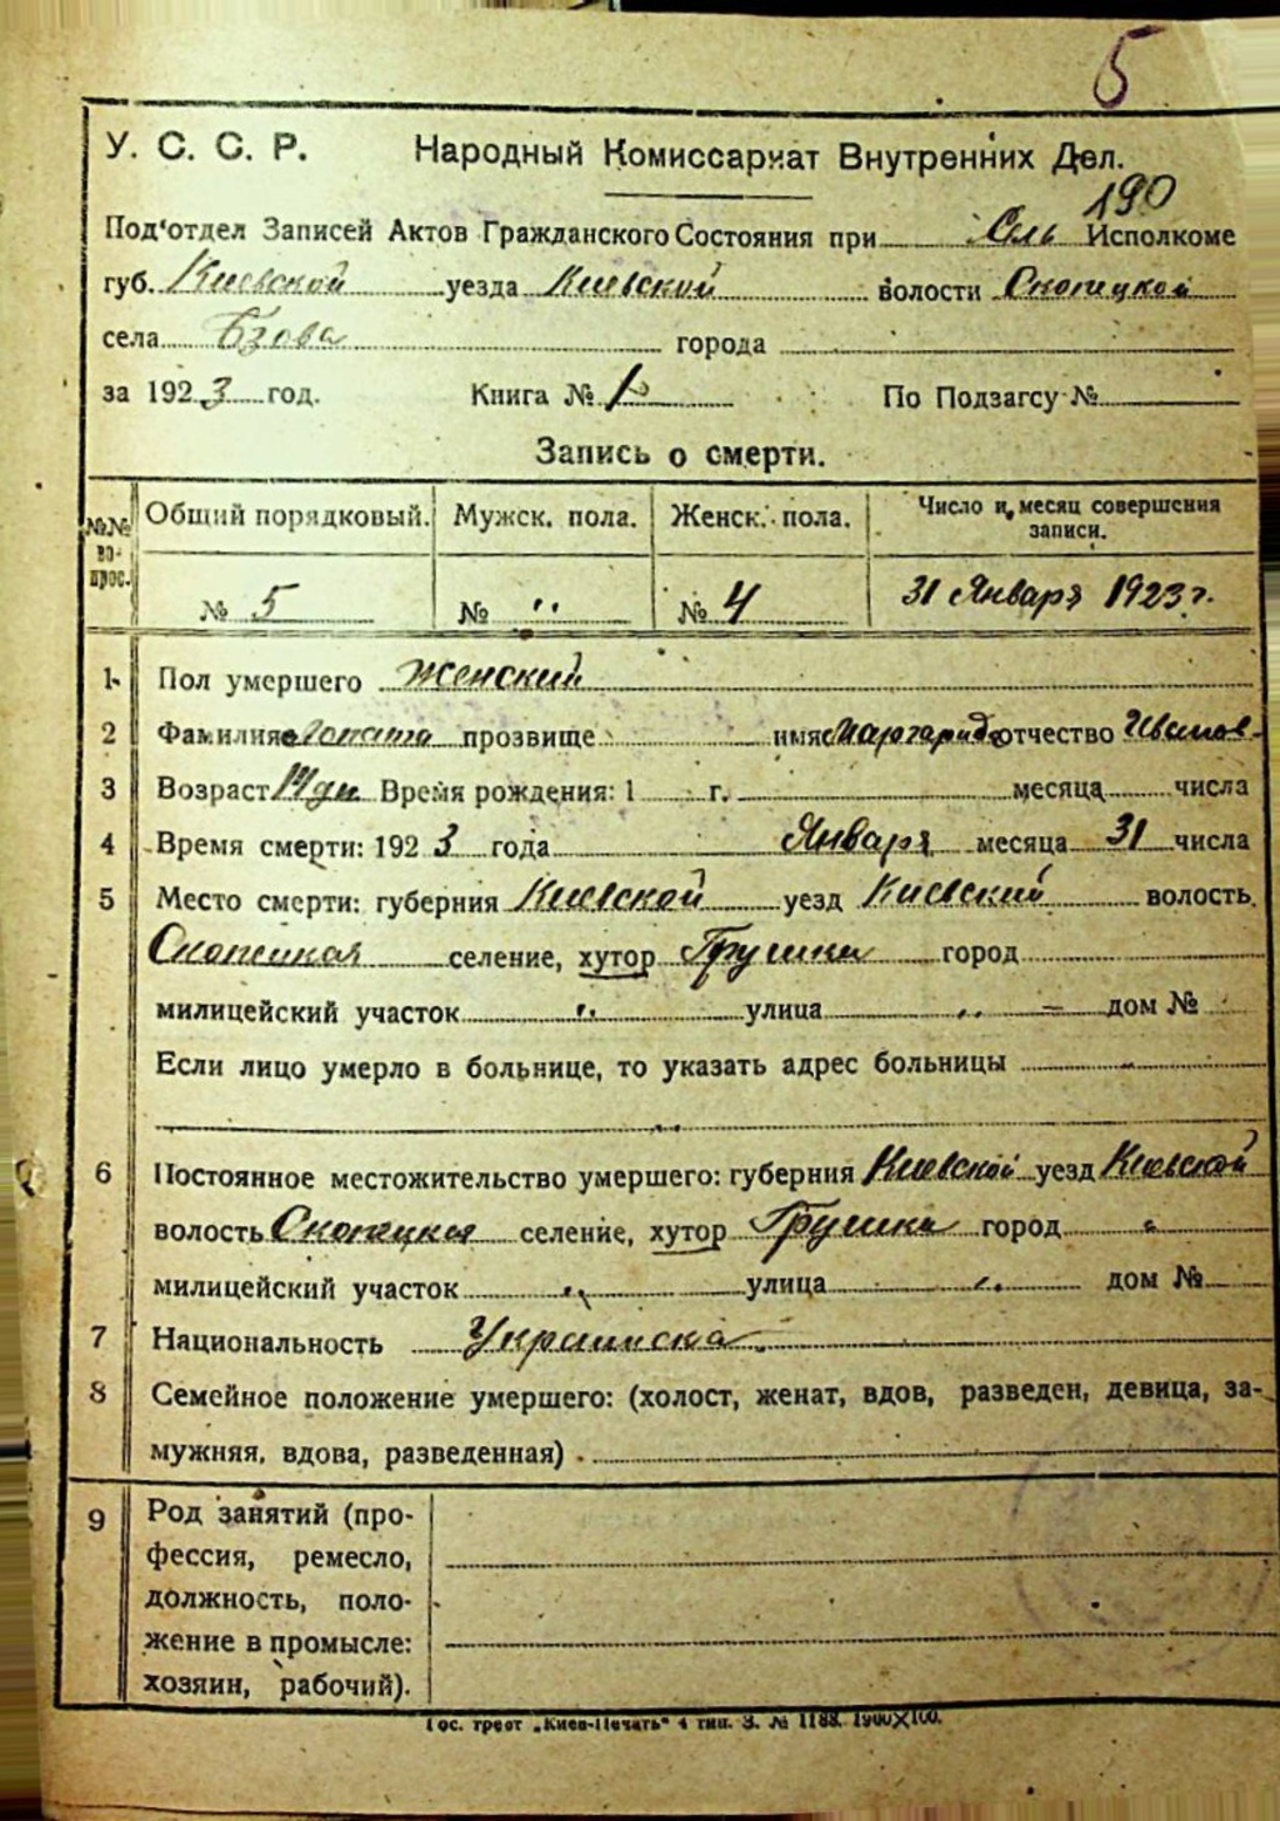 5
У. С. С. Р. Народный Комиссариат Внутренних Дел.
190
Под'отдел Записей Актов Гражданского Состояния при Сель Исполкоме
губ. Киевской уезда Киевской волости
села Бзова города
за 1923 год. Книга № По Подзагсу №
Запись о смерти.
№№ во- прос. Общий порядковый. Мужск. пола. Женск. пола. Число и месяц совершения записи.
№ 5 № " № 4 31 Января 1923 г.
1 Пол умершего Женский
2 Фамилия Лопата прозвище имя Маргарида отчество Иванов.
3 Возраст 14 дн. Время рождения: 1 г. месяца числа
4 Время смерти: 1923 года Января месяца 31 числа
5 Место смерти: губерния Киевской уезд Киевский волость.
селение, хутор Грушки город
милицейский участок " улица " — дом №
Если лицо умерло в больнице, то указать адрес больницы "
"
6 Постоянное местожительство умершего: губерния Киевской уезд Киевской
волость селение, хутор Грушки город "
милицейский участок " улица " дом №
7 Национальность Украинска
8 Семейное положение умершего: (холост, женат, вдов, разведен, девица, за-
мужняя, вдова, разведенная).
9 Род занятий (про-
фессия, ремесло,
должность, поло-
жение в промысле:
хозяин, рабочий).
Гос. трест „Киев-Печать" 4 тип. З. № 1188. 1900X100.